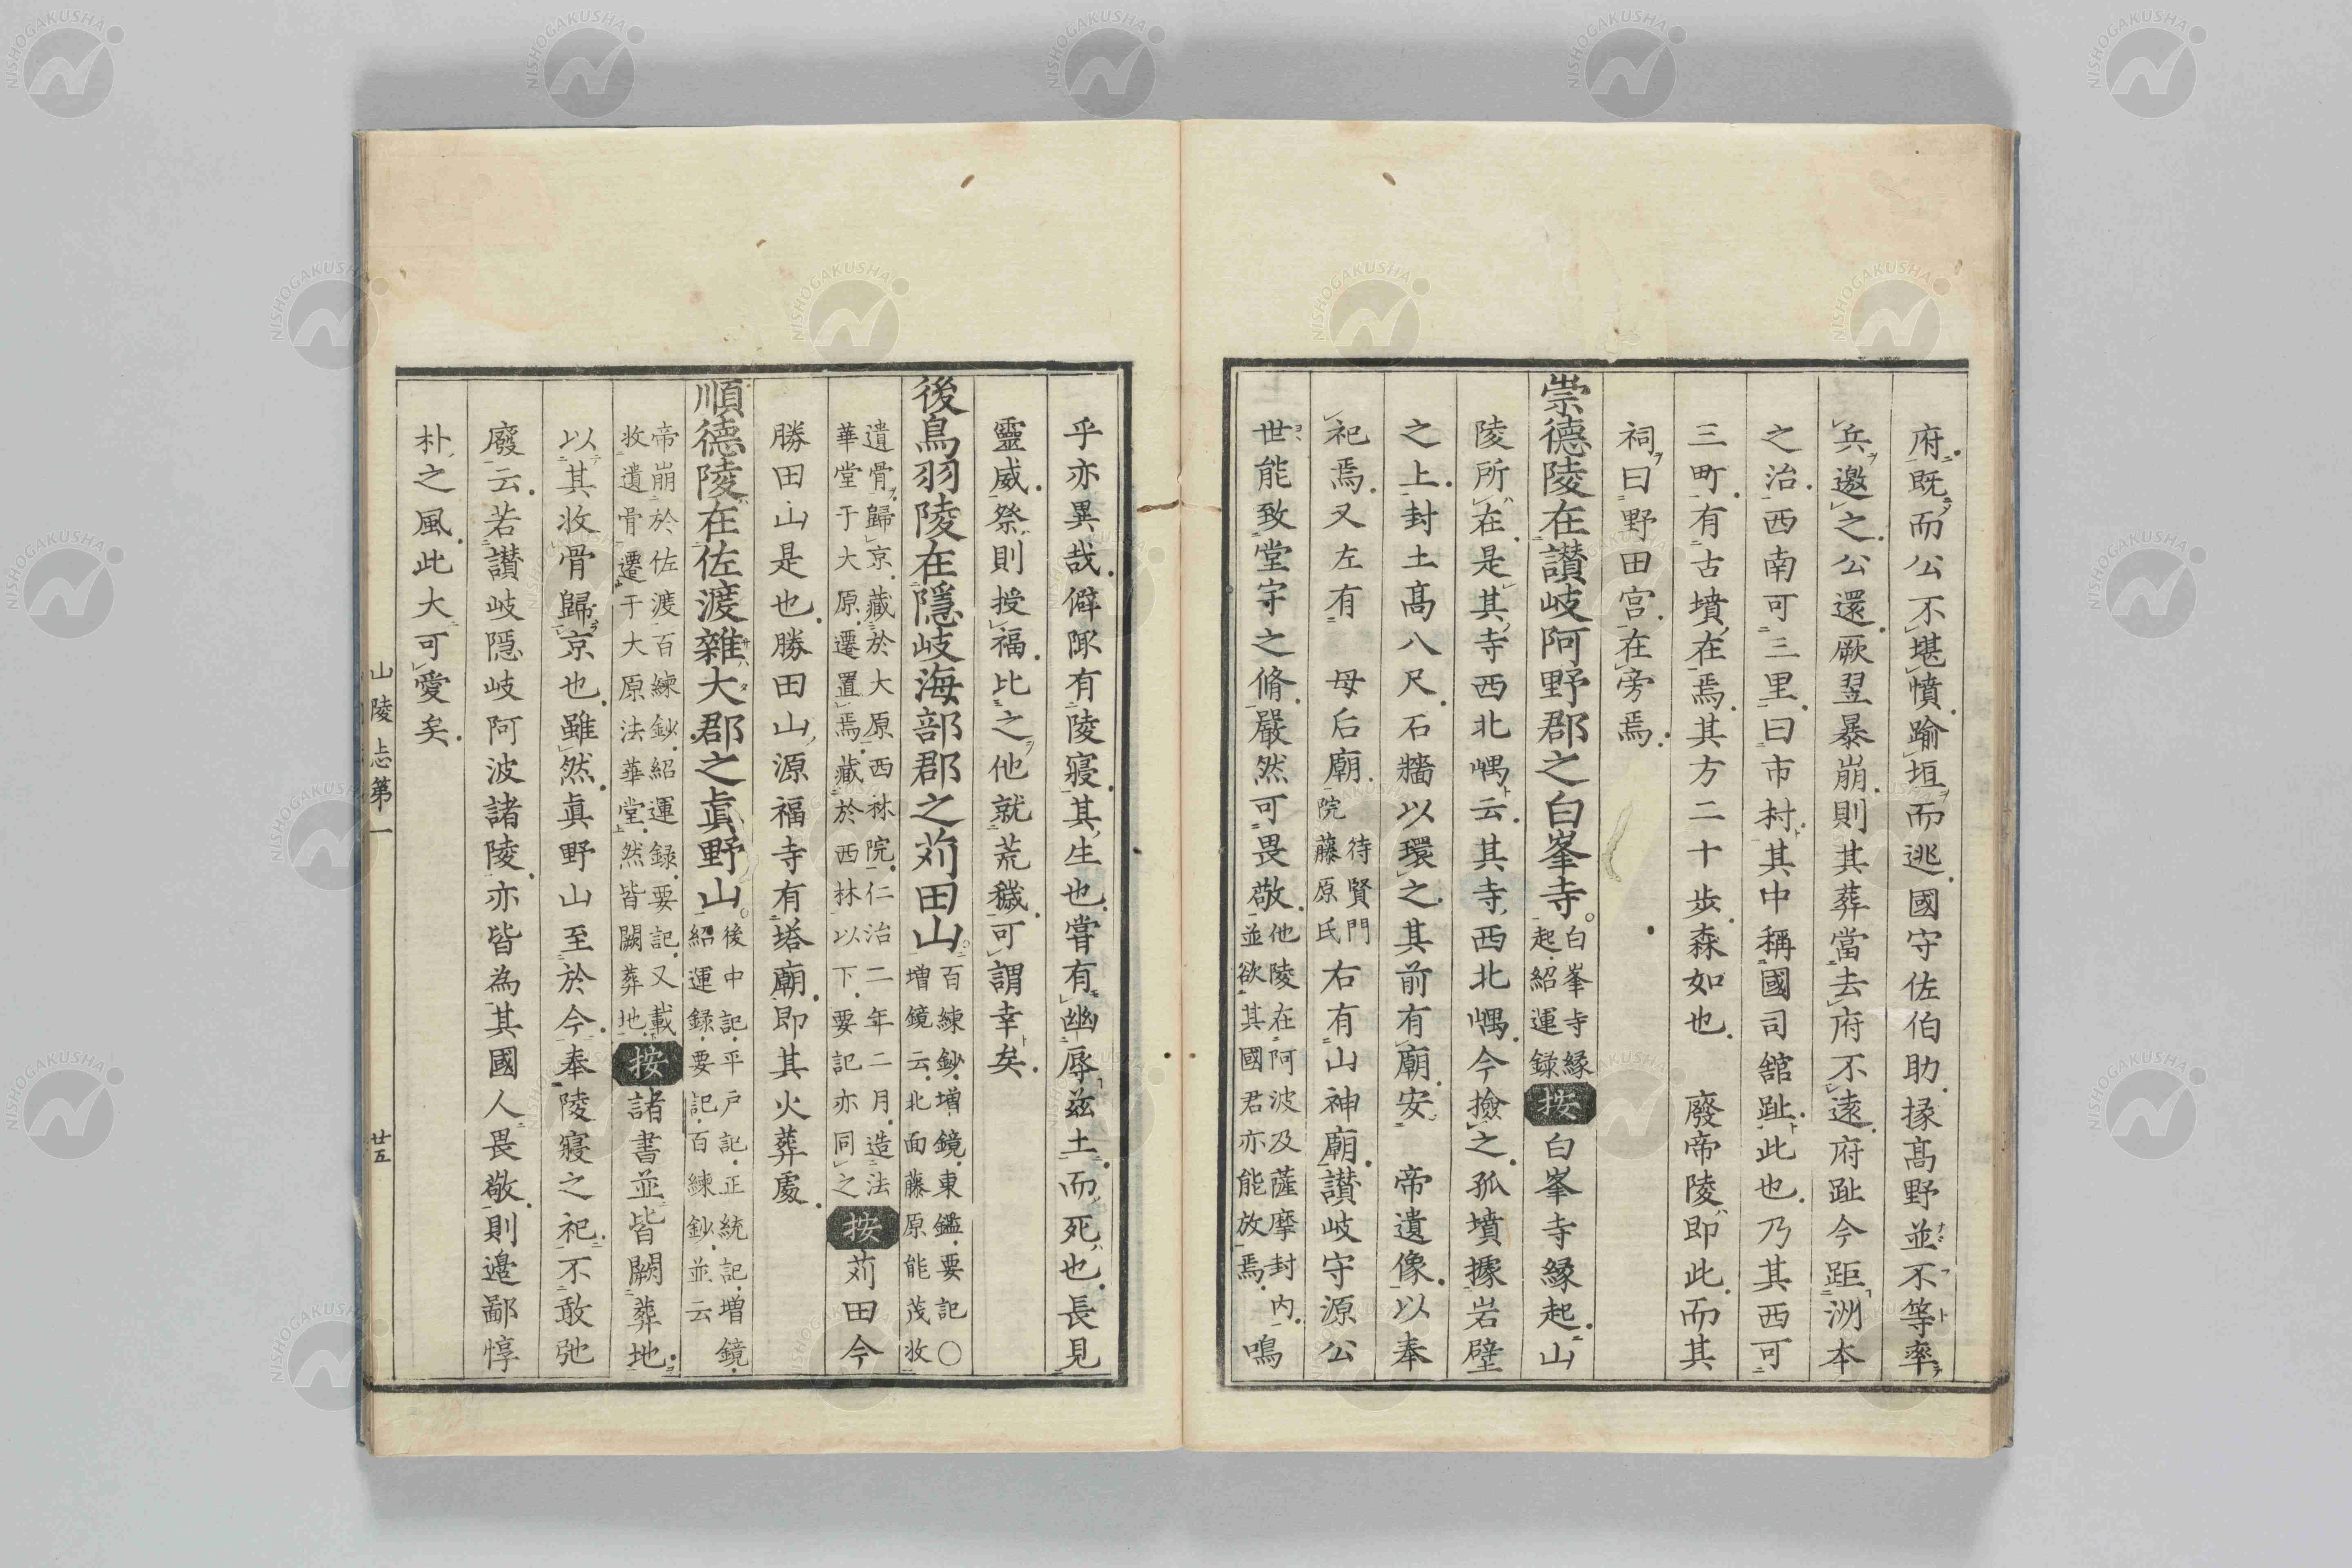 府既而公不堪憤踰垣而逃國守佐伯助掾髙野並不等率
兵邀之公還厥翌暴崩則其葬當去府不遠府趾今距洲本
之治西南可三里曰市村其中稱國司舘趾此也乃其西可
三町有古墳在焉其方二十歩森如也　廢帝陵即此而其
祠曰野田宮在旁焉
崇德陵在讃岐阿野郡之白峯寺。白峯寺縁起紹運録按白峯寺縁起山
陵所在是其寺西北嵎云其寺西北嵎今撿之孤墳據岩壁
之上封土髙八尺石牆以環之其前有廟安　帝遺像以奉
祀焉又左有　母后廟待賢門院藤原氏右有山神廟讃岐守源公
世能致堂宇之脩嚴然可畏敬他陵在阿波及薩摩封内並欲其國君亦能放焉鳴
乎亦異哉僻陬有陵寝其生也嘗有幽辱茲土而死也長見
靈威祭則授福比之他就荒穢可謂幸矣
後鳥羽陵在隱岐海部郡之苅田山。百練鈔増鏡東鑑要記〇増鏡云北面藤原能茂收
遺骨歸京藏於大原西林院仁治二年二月造法華堂于大原遷置焉藏於西林以下要記亦同之按苅田今
勝田山是也勝田山源福寺有塔廟即其火葬處
順德陵在佐渡雜大郡之眞野山。後中記平戸記正統記増鏡紹運録要記百練鈔並云
帝崩於佐渡百練鈔紹運録要記又載收遺骨遷于大原法華堂然皆闕葬地按諸書並皆闕葬地
以其收骨歸京也雖然眞野山至於今奉陵寝之祀不敢弛
廢云若讃岐隱岐阿波諸陵亦皆為其國人畏敬則邉鄙惇
朴之風此大可愛矣
山陵志第一　廿五
NISHOGAKUSHA